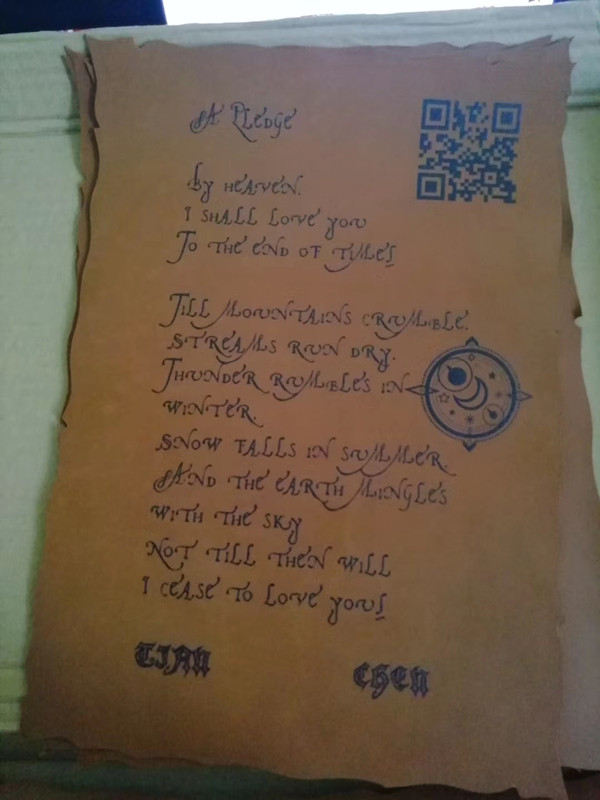 A Pledge
By heaven.
I shall love you
To the end of times!
Till mountains crumble.
Streams run dry.
Thunder rumbles in
winter.
Snow falls in summer.
And the earth mingles
with the sky
Not till then will
I cease to love you!
Tian
Chen